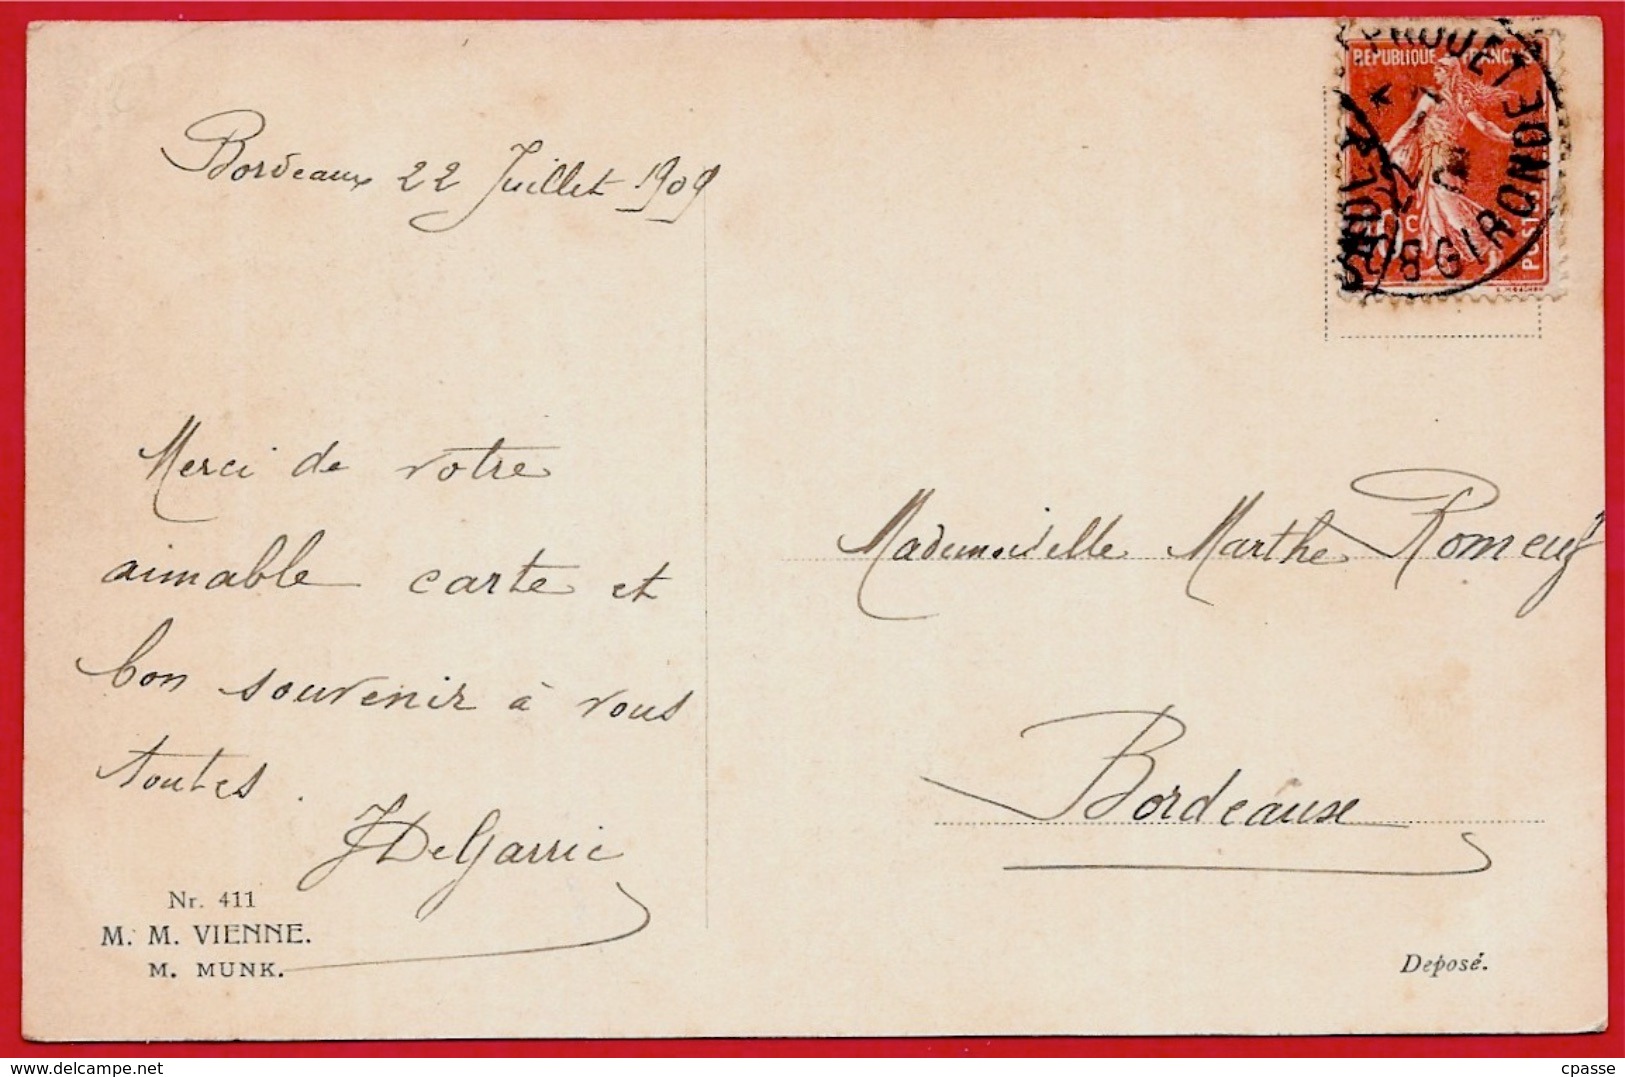 Bordeaux 22 Juillet 1909
Merci de votre
aimable carte et
bon souvenir à vous
toutes.
JDeGarric
Nr. 411
M. M. VIENNE.
M. MUNK.
REPUBLIQUE FRANCAISE
POSTES
GIRONDE
Mademoiselle Marthe Romeuf
Bordeaux
Deposé.
www.delcampe.net
cpasse